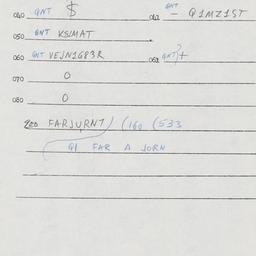 040 QNT $ 042 QNT — Q1MZ1ST
050 QNT KSIMAT
060 QNT VEJN1G83R 062 QNT
070 0
080 0
200 FARJURNT) (160 (533
Q1 FAR A JORN